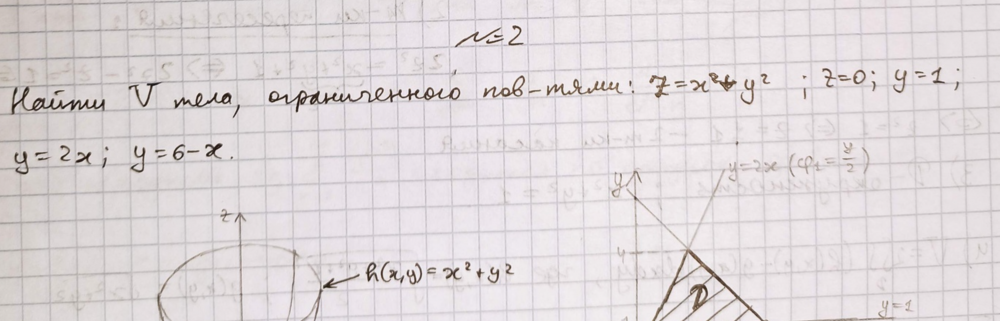 №2
Найти V тела, ограниченного пов-тями: z=x²+y² ; z=0; y=1;
y=2x; y=6-x.
y=2x (φ₁=y/2)
y
z
h(x,y)=x²+y²
4
D
y=1